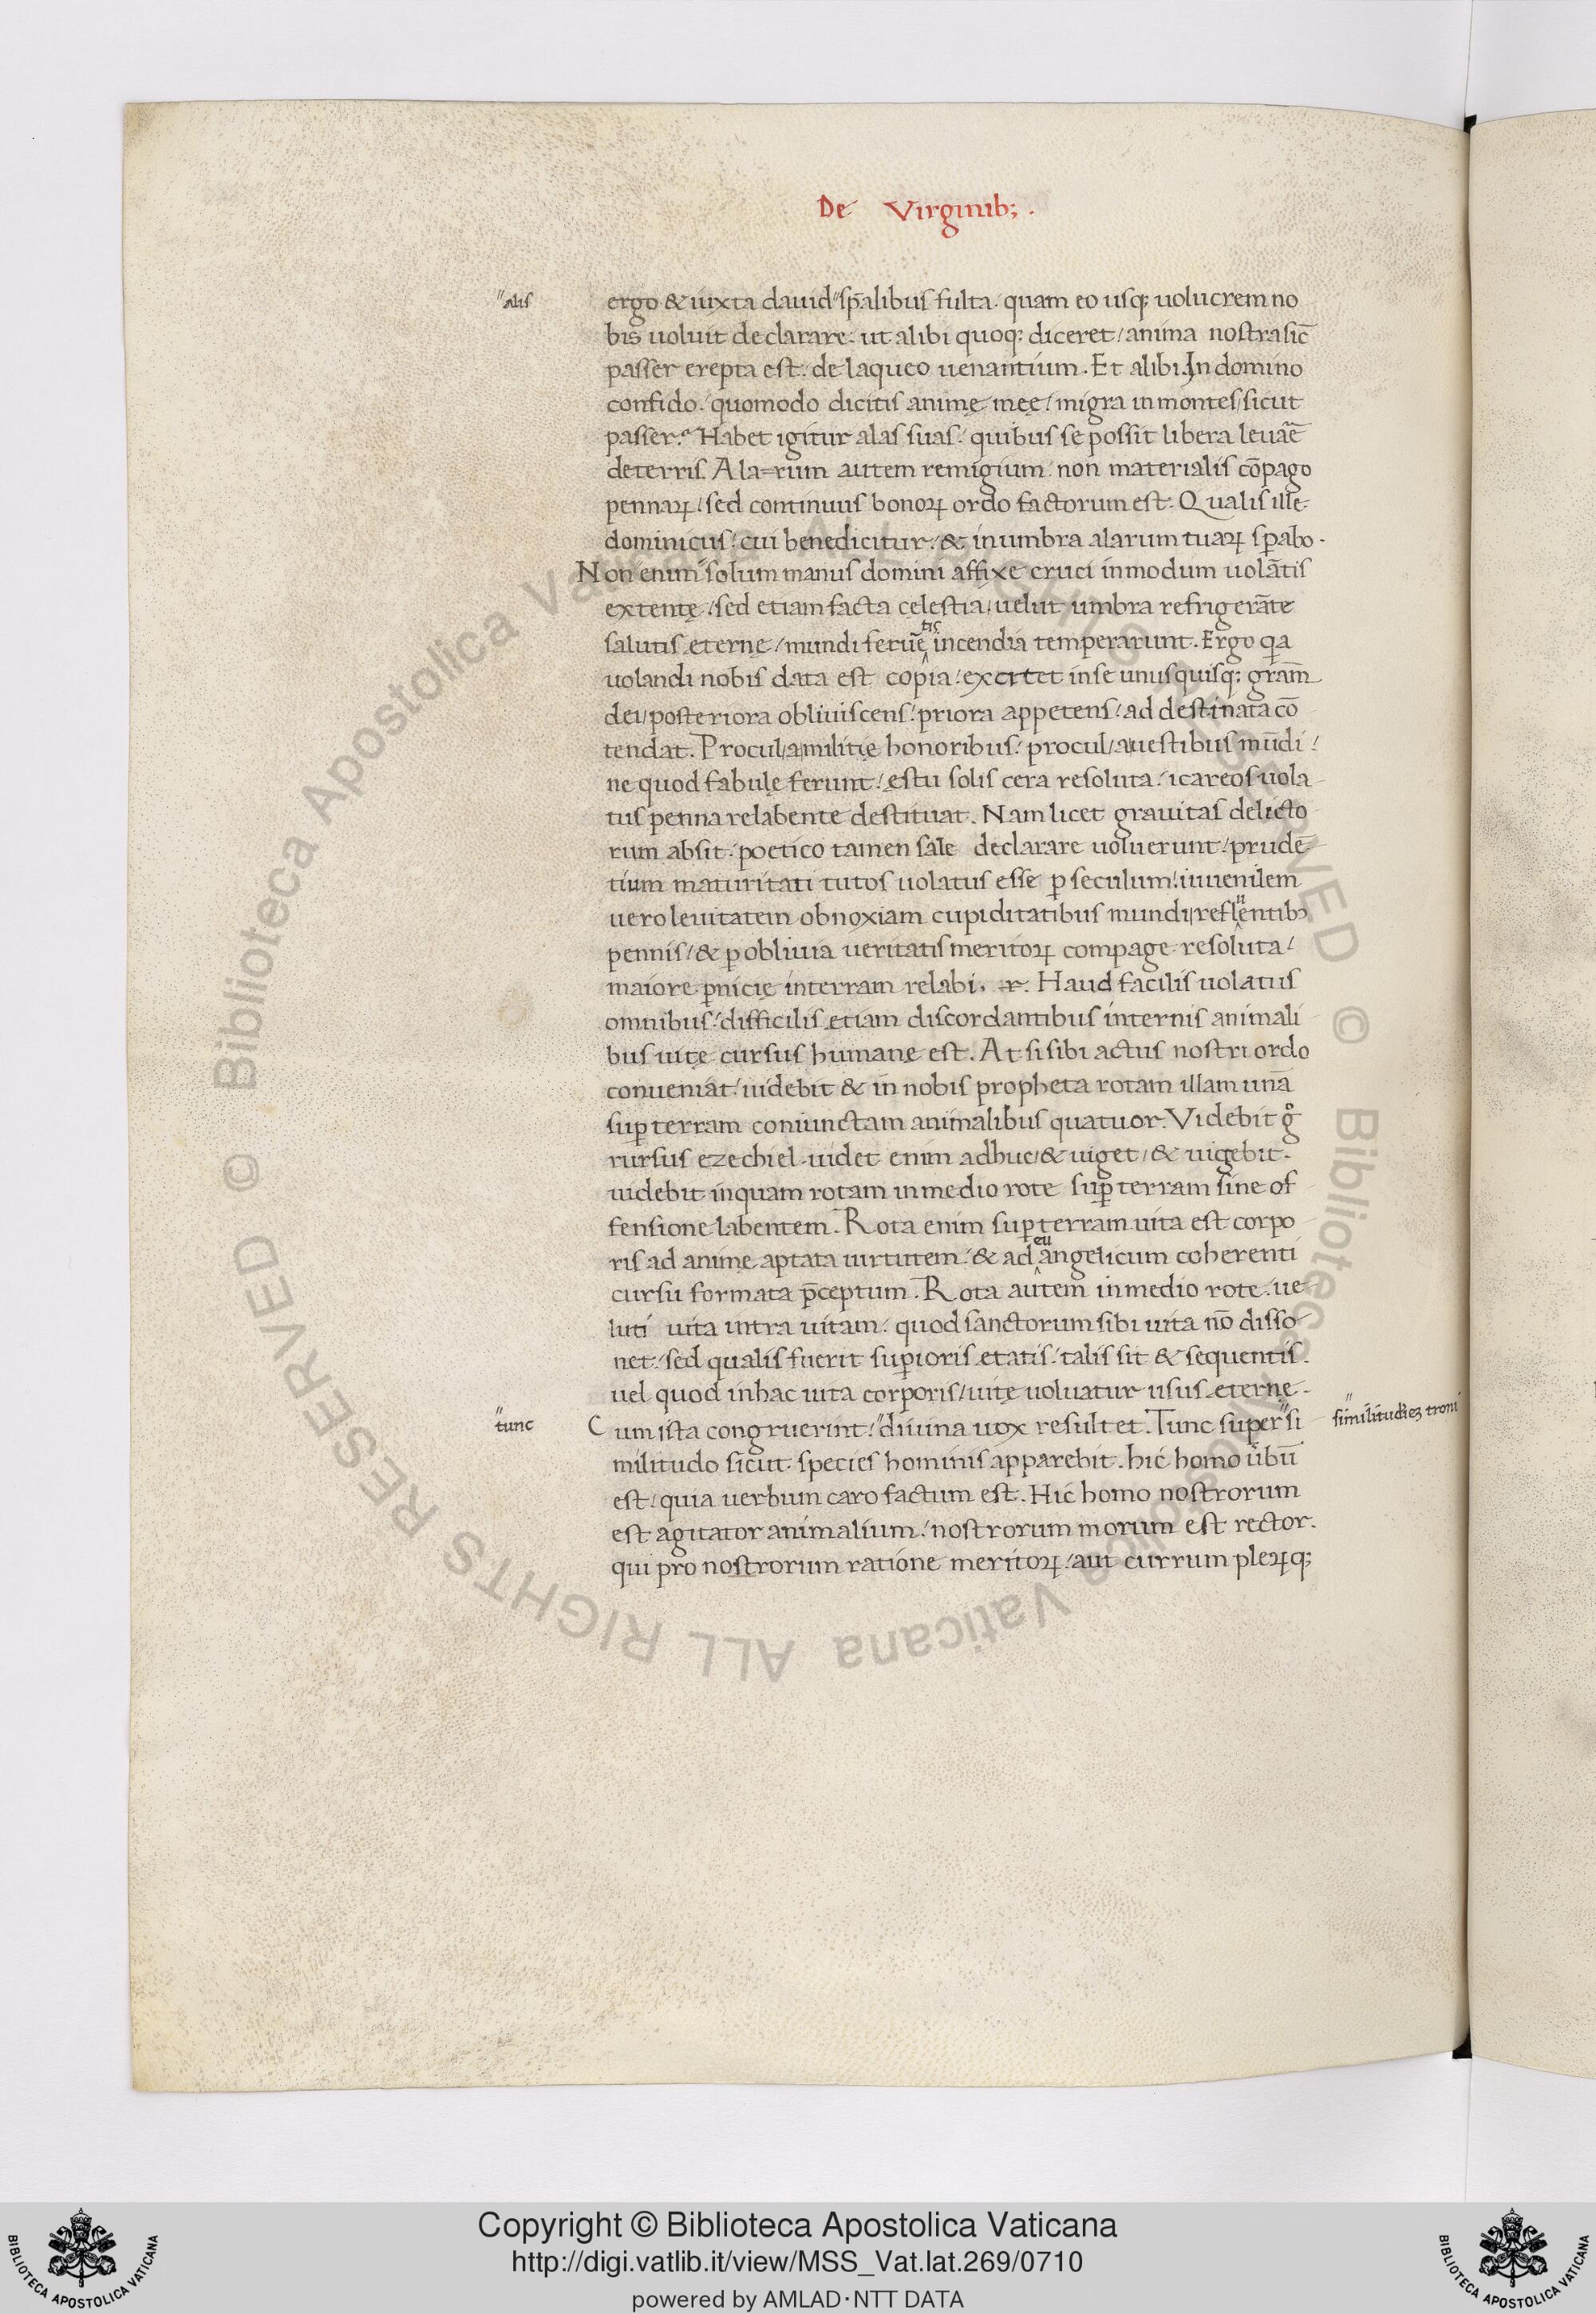 De Virginib; .
"alis
ergo & iuxta dauid "sp̄alibus fulta. quam eo usq; uolucrem no
bis uoluit declarare. ut alibi quoq; diceret / anima nostra sic̄
passer erepta est. de laqueo uenantium. Et alibi. In domino
confido. quomodo dicitis animę meę / migra in montes / sicut
passer. Habet igitur alas suas. quibus se possit libera leuar̄e
de terris. Ala=rum autem remigium. non materialis cō̄pago
pennaꝝ / sed continuus bonoꝝ ordo factorum est. Qualis ille
dominicus / cui benedicitur / & in umbra alarum tuaꝝ sꝑabo.
Non enim "solum manus domini affixe cruci in modum uolātis
extentę / sed etiam facta cęlestia / uelut umbra refrigerāte
salutis eternę / mundi feruē^tis incendia temperarunt. Ergo qa
uolandi nobis data est copia / excitet in se unusquisq; gram̄
dei / posteriora obliuiscens / priora appetens / ad destinata cō
tendat. Procul / a militię honoribus / procul / a uestibus mūdi /
ne quod fabulę ferunt / ęstu solis cera resoluta / icareos uola
tus penna relabente destituat. Nam licet grauitas delicto
rum absit. poetico tamen sale declarare uoluerunt / prudē
tium maturitati tutos uolatus esse ꝑ seculum / iuuenilem
uero leuitatem obnoxiam cupiditatibus mundi / refl^uentibꝫ
pennis / & ꝑ obliuia ueritatis meritoꝝ compage resoluta /
maiore ꝑnicię in terram relabi. r. Haud facilis uolatus
omnibus / difficilis etiam discordantibus internis animali
bus uitę cursus humanę est. At si sibi actus nostri ordo
conueniat / uidebit & in nobis propheta rotam illam unā
suꝑ terram coniunctam animalibus quatuor. Videbit gͦ
rursus ezechiel. uidet enim adhuc / & uiget / & uigebit.
uidebit inquam rotam in medio rote suꝑ terram sine of
fensione labentem. Rota enim suꝑ terram uita est corpo
ris ad animę aptata uirtutem / & ad ^euangelicum coherenti
cursu formata p̄ceptum. Rota autem in medio rote / ue
luti uita intra uitam / quod sanctorum sibi uita nō disso
net / sed qualis fuerit suꝑioris etatis / talis sit & sequentis.
uel quod in hac uita corporis / uitę uoluatur usus eternę.
"tunc
Cum ista congruerint / "diuina uox resultet. Tunc super "si
"similitudiēꝫ troni
militudo sicut species hominis apparebit. hic homo ūbū
est / quia uerbum caro factum est. Hic homo nostrorum
est agitator animalium / nostrorum morum est rector.
qui pro nostrorum ratione meritoꝝ / aut currum pleꝝq;
Copyright © Biblioteca Apostolica Vaticana
http://digi.vatlib.it/view/MSS_Vat.lat.269/0710
powered by AMLAD·NTT DATA
© Biblioteca Apostolica Vaticana ALL RIGHTS RESERVED
© Biblioteca Apostolica Vaticana ALL RIGHTS RESERVED
BIBLIOTECA APOSTOLICA VATICANA
BIBLIOTECA APOSTOLICA VATICANA